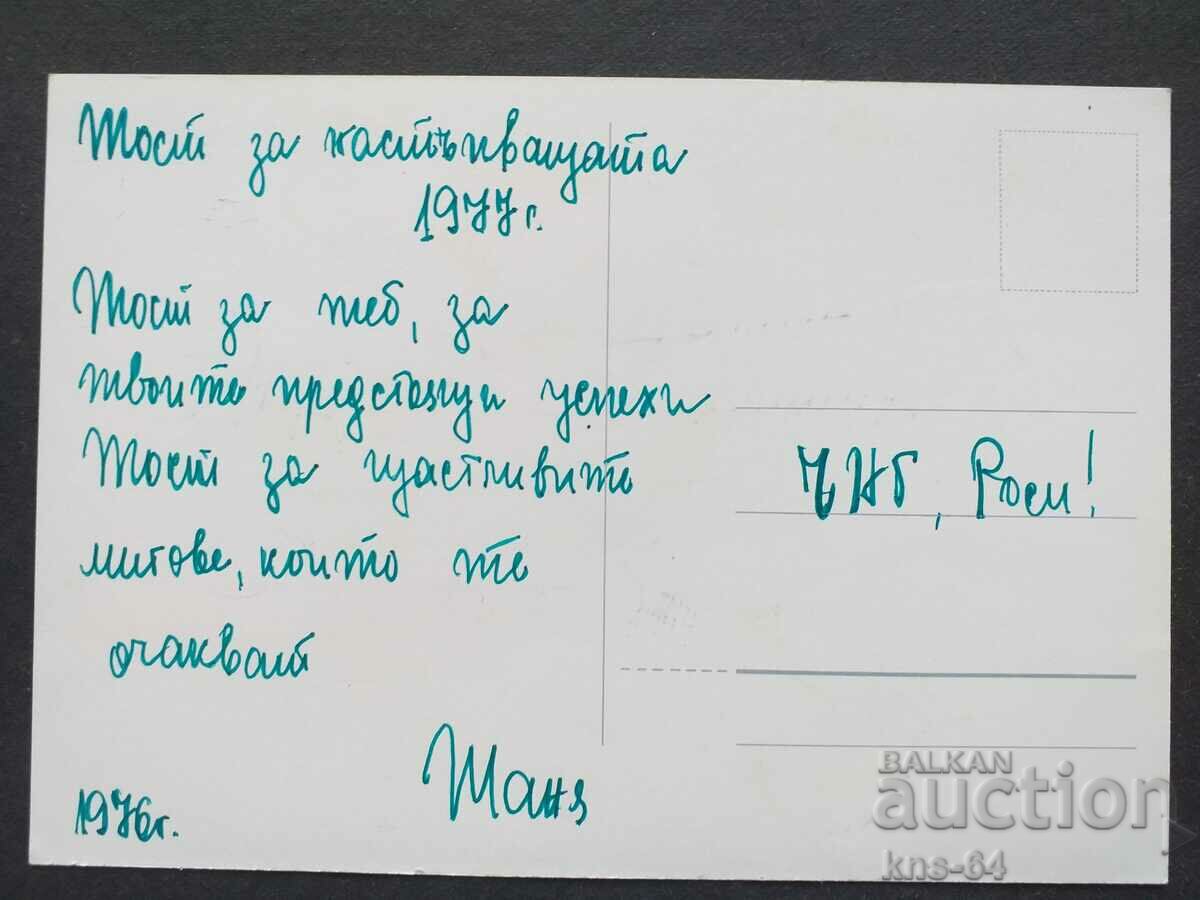 Тост за настъпващата
1977 г.
Тост за теб, за
твоите предстоящи успехи
Тост за щастливите
митове, които те
очакват
Таня
1976г.
ЧНГ, Роси!
BALKAN
auction
kns-64